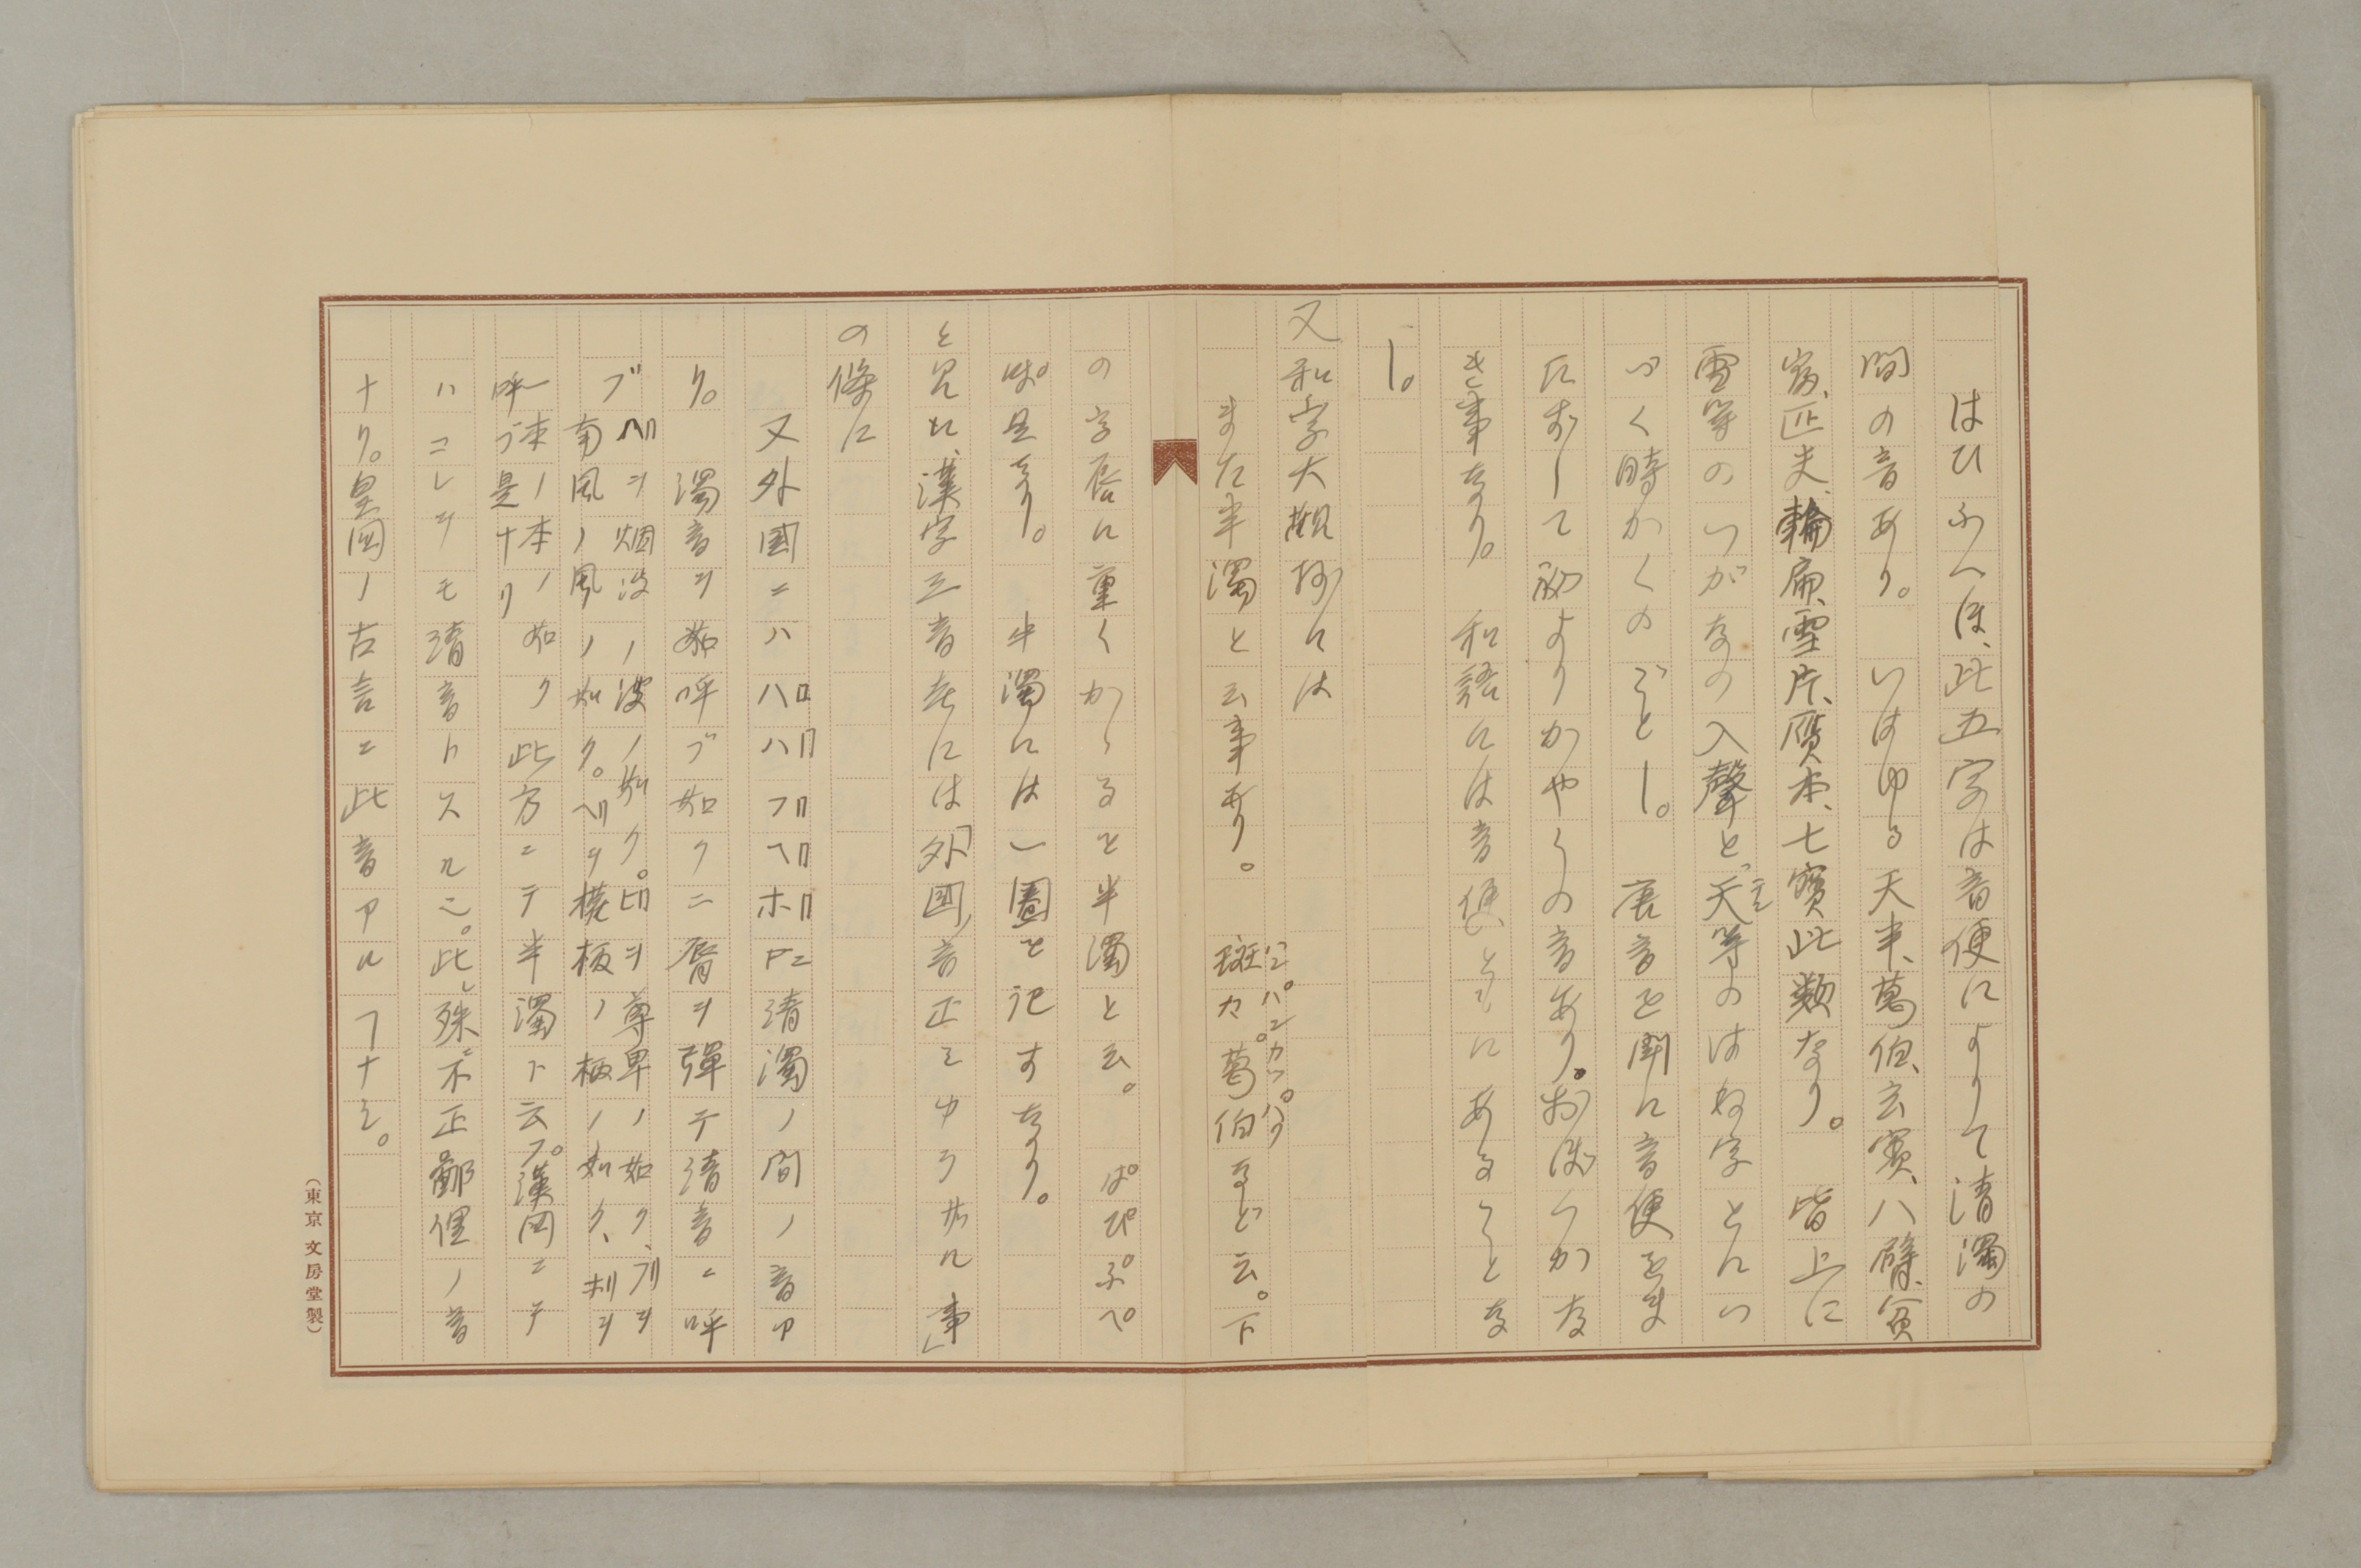 はひふへほ、此五字は音便によりて清濁の
間の音あり。いはゆる天半、萬伯、玄賓、八臂、貧
窮、匹夫、輪扁、雪片、贋本、七寶此類なり。皆上に
雪等のつがなの入聲と、天等のはね字とんつ
づく時かくのごとし。唐音を聞に音便をま
たずして初よりかやうの音あり。おほつかな
き事なり。和語には音便ともにあることな
し。
又和字大観抄には
また半濁と云事有り。斑カ。葛伯など云。下
ハン。パン。カツ。ハク
の字唇に重くかゝるを半濁と云。ぱぴぷぺ
ぽ。是なり。半濁には一圏を記すなり。
と見え、漢字三音考には「外國ノ音正シカラザル事」
の條に
又外國ニハ ハロハ〢フ〢ヘ〢ホ〢ト云清濁ノ間ノ音ア
リ。濁音ヲ如呼ブ如クニ脣ヲ彈テ清音ニ呼
ブ
ヘ〢ヲ烟波ノ波ノ如ク。ヒ〢ヲ尊卑ノ如ク、フ〢ヲ
南風ノ風ノ如ク。ヘ〢ヲ權柄ノ柄ノ如ク、ホ〢ヲ
一本ノ本ノ如ク此方ニテ半濁ト云フ。漢國ニテ
呼ブ是ナリ
ハコレヲモ清音トスル也。此レ殊ニ不正鄙俚ノ音
ナリ。皇國ノ古言ニ此音アルヿナシ。
（東京 文房堂製）